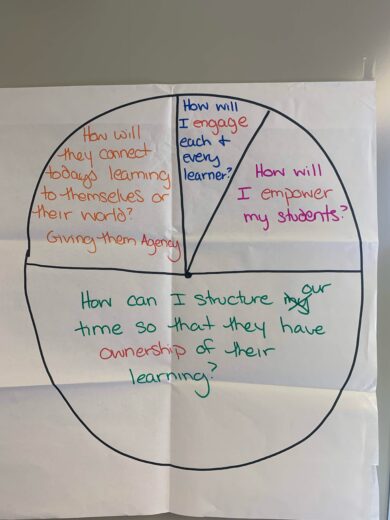 How will
they connect
todays learning
to themselves or
their world?
Giving them Agency
How will
I engage
each +
every
learner?
How will
I empower
my students?
How can I structure my our
time so that they have
ownership of their
learning?